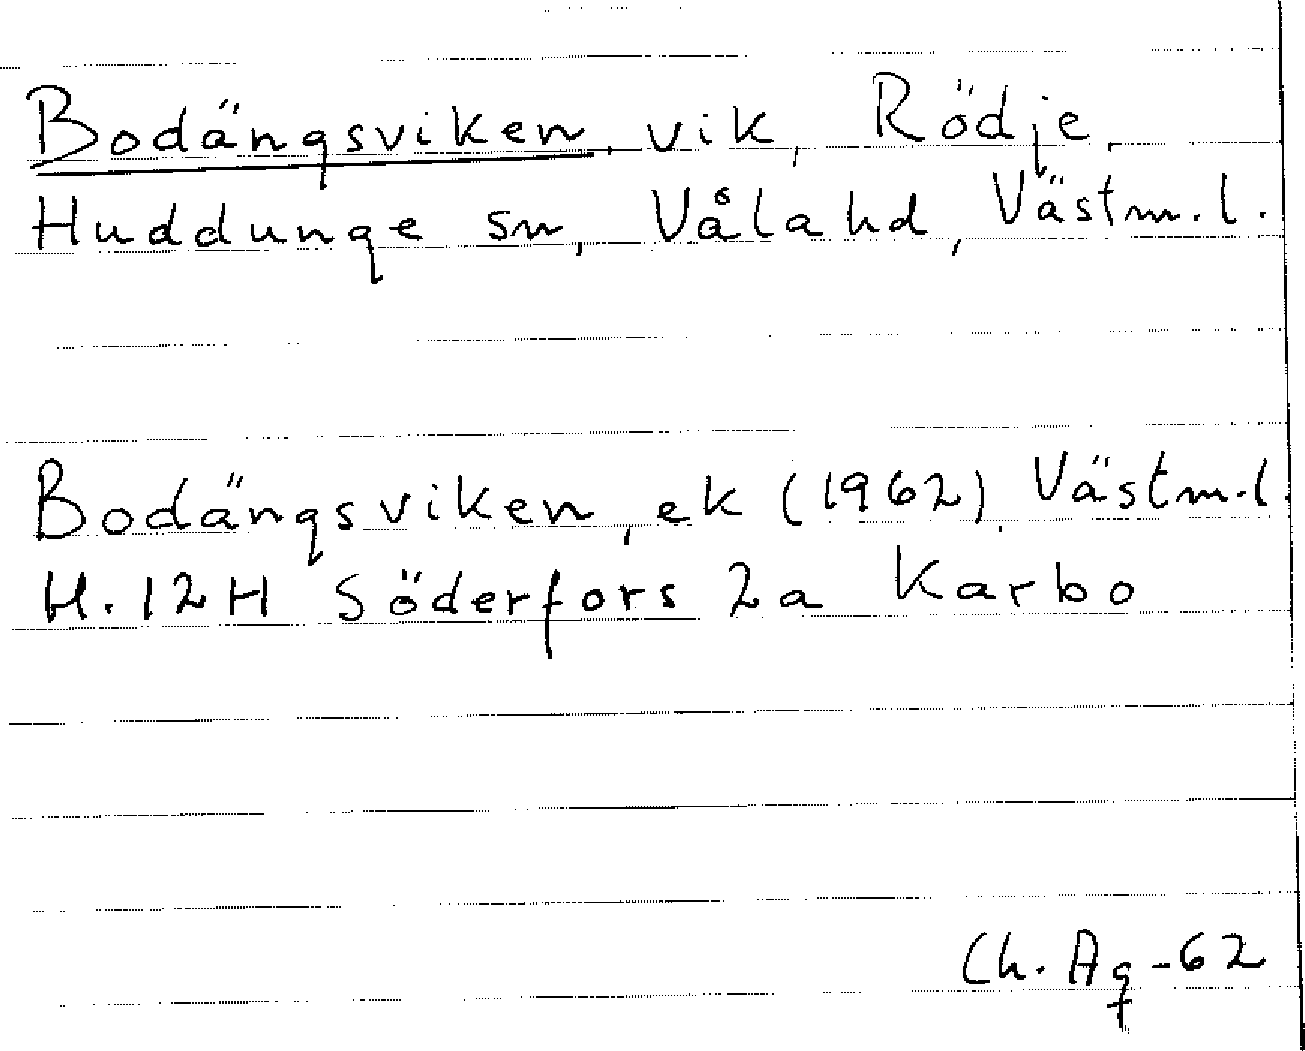 Bodängsviken, vik, Rödje,
Huddunge sn, Våla hd, Västm. l.
Bodängsviken, ek (1962), Västm. l.
H. 12H Söderfors 2a Karbo
Ch. Ag -62